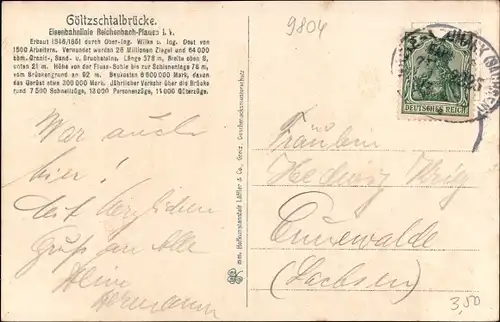 Göltzschtalbrücke.
Eisenbahnlinie Reichenbach-Plauen i. V.
Erbaut 1846/1851 durch Ober-Ing. Wilke u. Ing. Dost von
1500 Arbeitern. Verwendet wurden 26 Millionen Ziegel und 64 000
cbm. Granit-, Sand- u. Bruchsteine. Länge 578 m, Breite oben 8,
unten 21 m. Höhe von der Fluss-Sohle bis zur Schienenlage 78 m,
vom Brückengrund an 92 m. Baukosten 6 600 000 Mark, davon
das Gerüst allein 300 000 Mark. Jährlicher Verkehr über die Brücke
rund 7 500 Schnellzüge, 13 000 Personenzüge, 11 000 Güterzüge.
9804
DEUTSCHES REICH
War auch
hier!
Mit herzlichem
Gruß an Alle
Dein
Hermann
Löffler & Co., Greiz.
Fräulein
Hedwig
Cunewalde
(Sachsen)
3,50